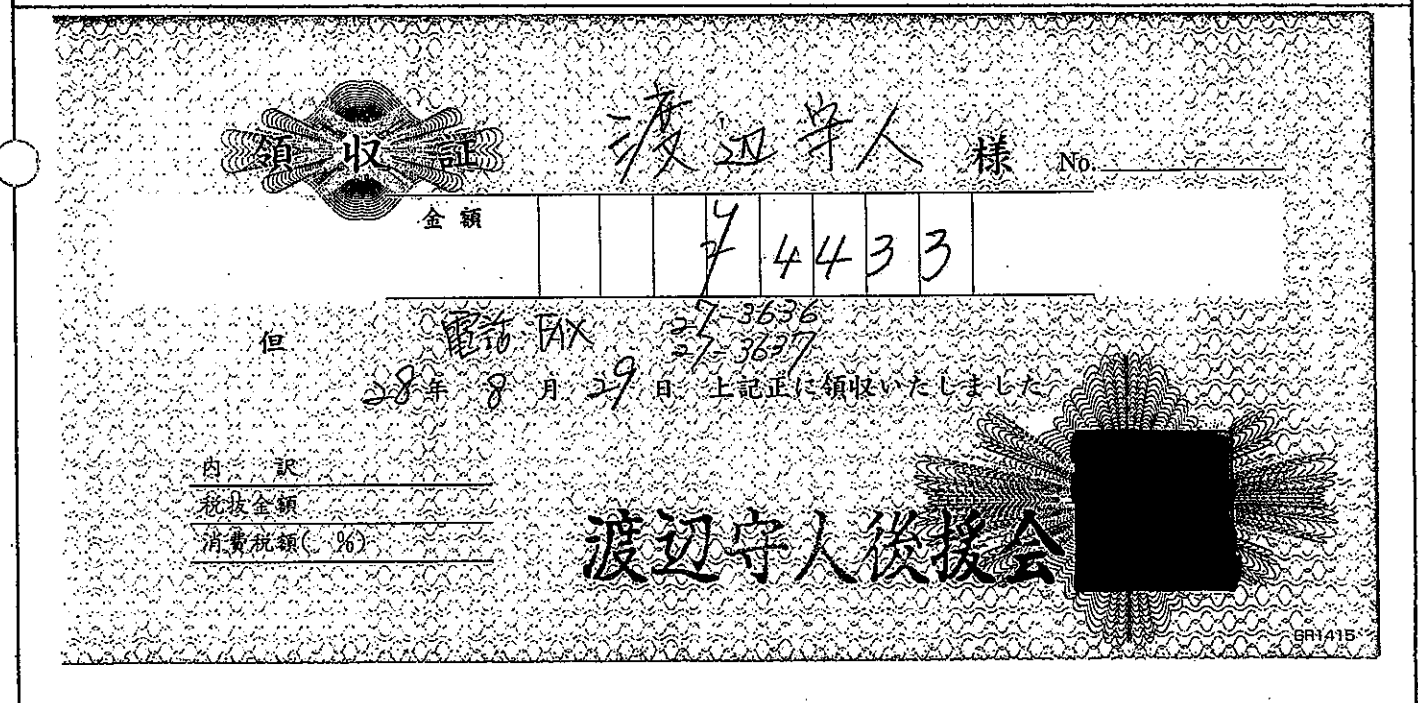 領収証 渡辺守人 様 No.
金額 ¥4433
但 電話 FAX 27-3636
27-3637
28年 8月 29日 上記正に領収いたしました
内訳
税抜金額
消費税額( %)
渡辺守人後援会
GR1415